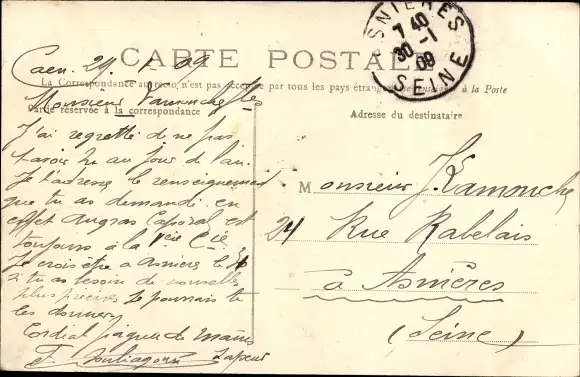 CARTE POSTALE
La Correspondance au recto, n'est pas acceptée par tous les pays étrangers à la Poste
Carte réservée à la correspondance
Adresse du destinataire
ASNIERES
7 40
30 - 1
09
SEINE
Caen 29 1 09
Monsieur
J'ai regretté de ne pas
t'avoir vu au jour de l'an.
Je t'adresse le renseignement
que tu as demandé. en
effet Augras Caporal est
toujours à la Cie
Je crois être à Asnières le
si tu as besoin de nouvelles
plus précises je pourrais te
les donner
Cordial poignée de mains
Sapeur
Monsieur J.
24 Rue Rabelais
à Asnières
(Seine)